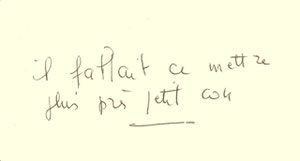 il fallait ce mettre
plus près petit con